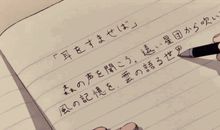 「耳をすませば」
森の声を聞こう、遠い星団から吹い
風の記憶を、雲の語る世界